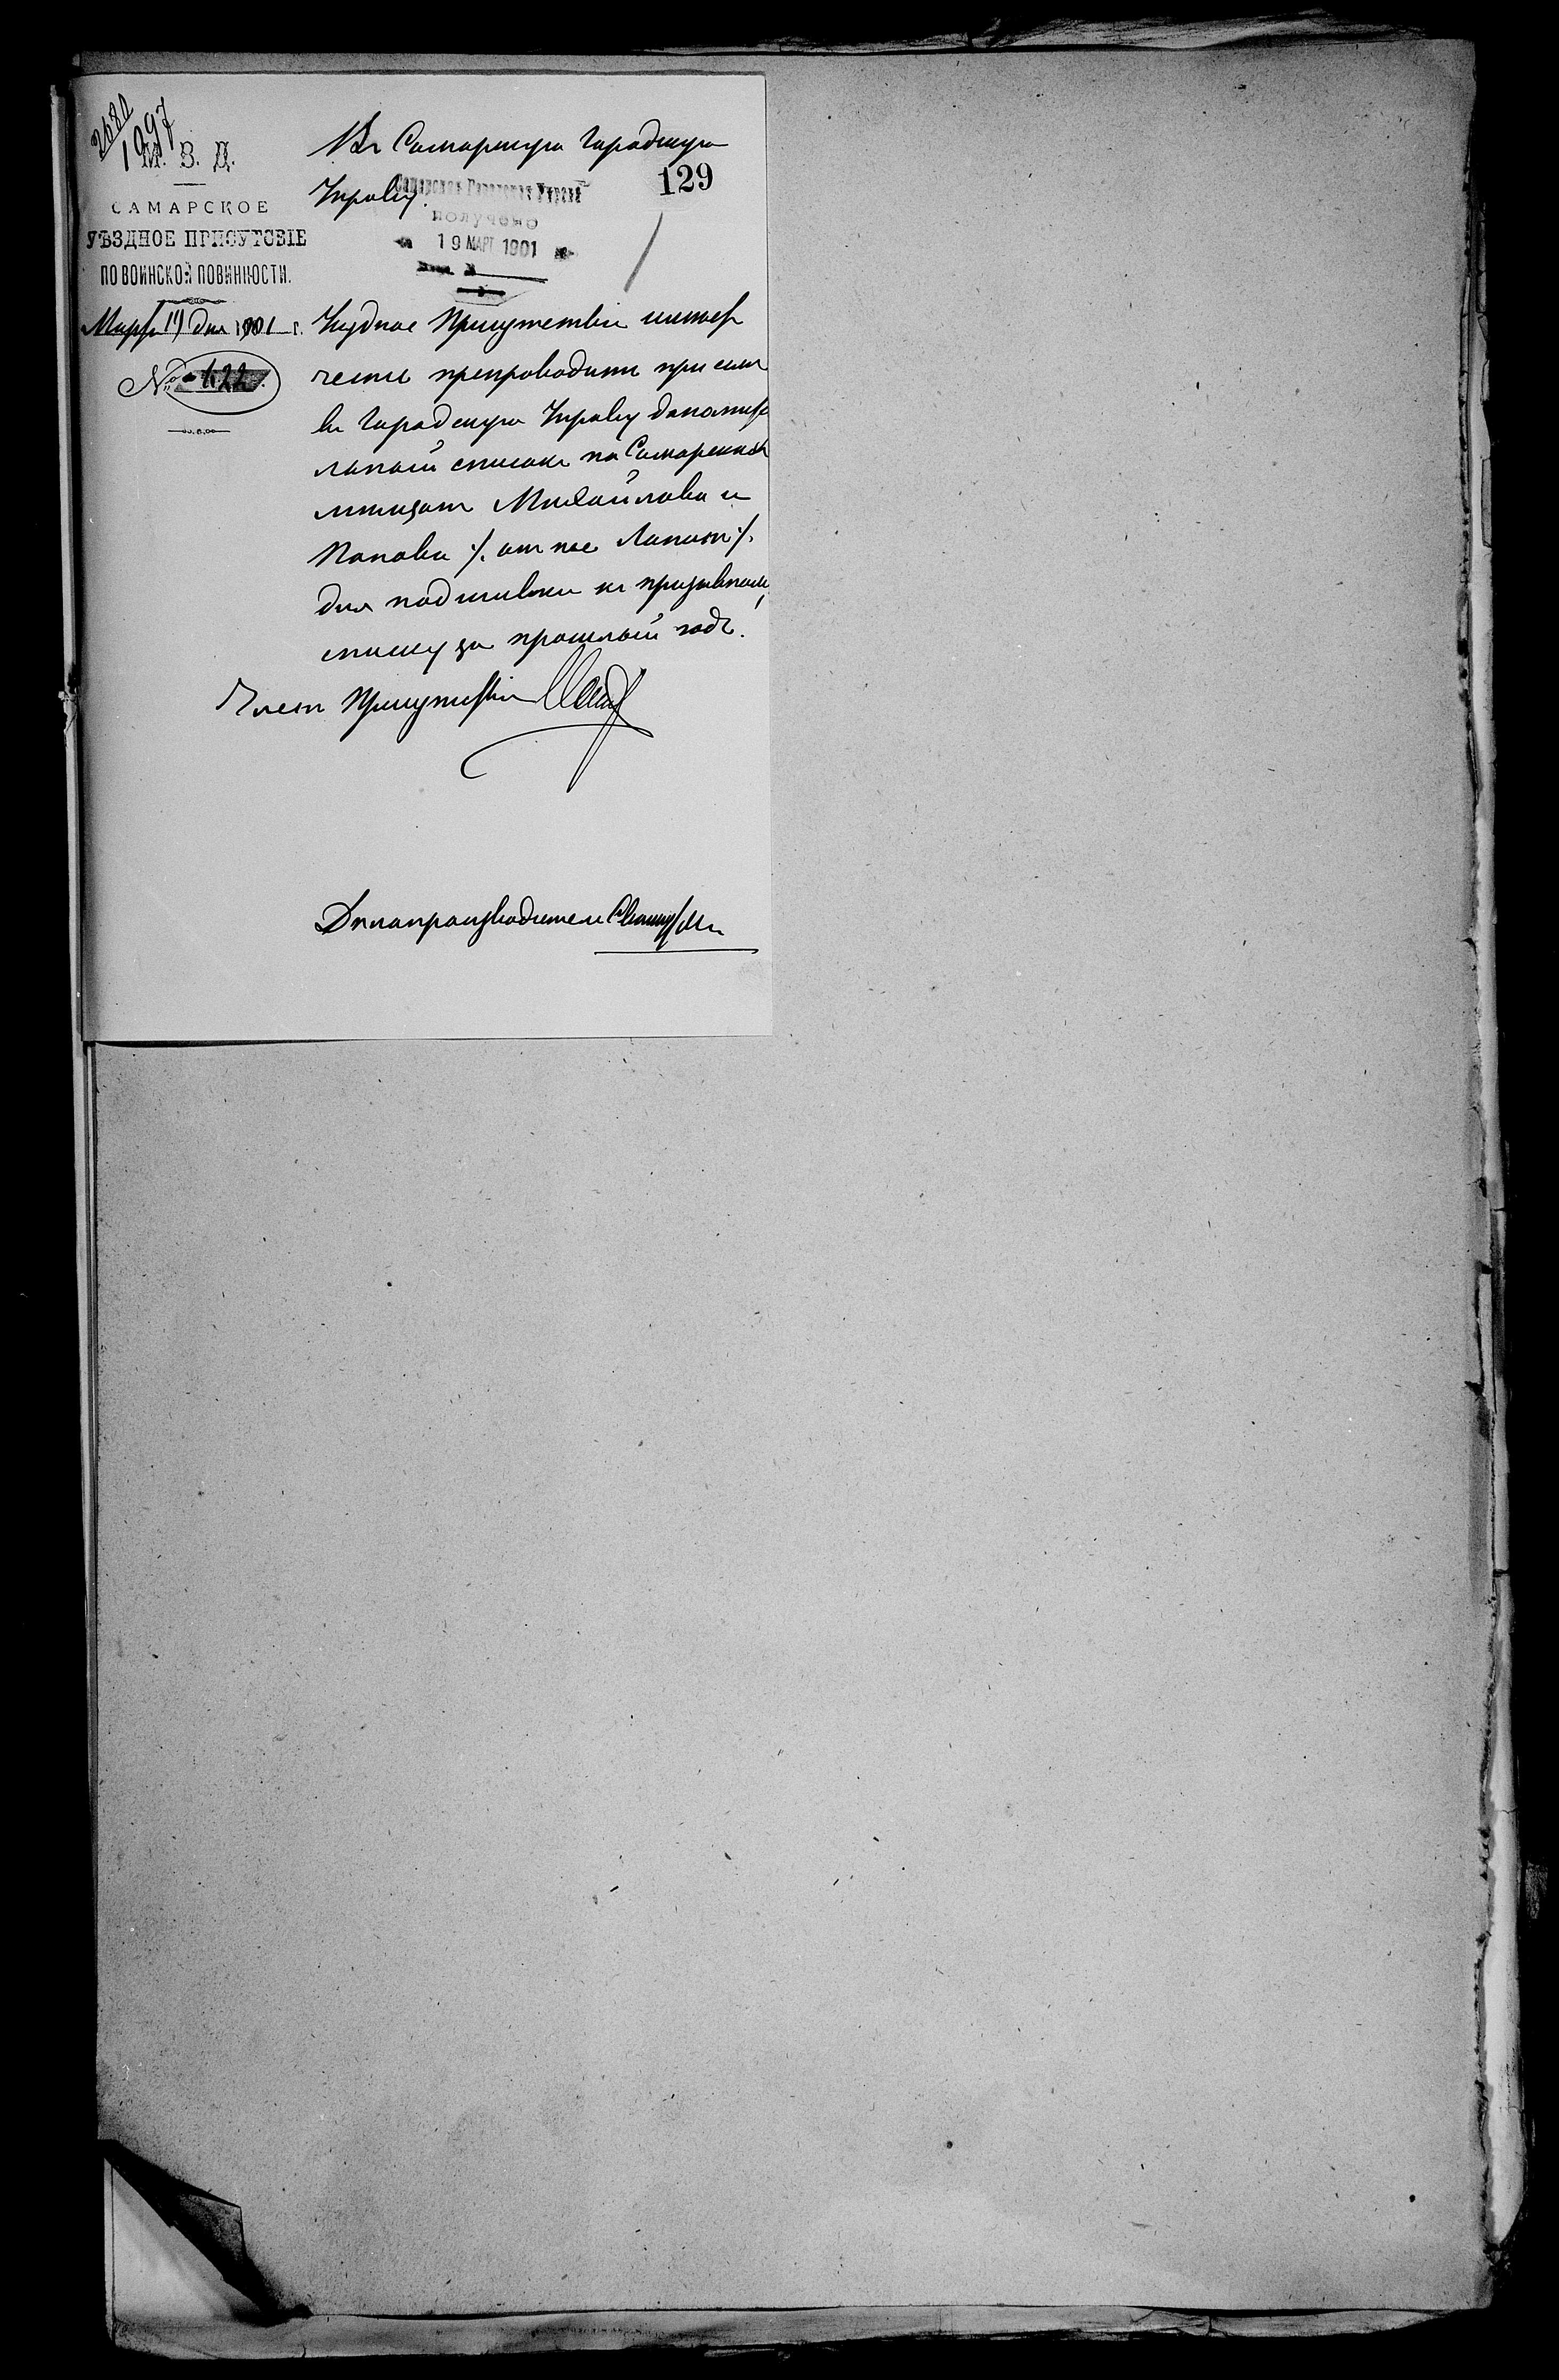 2680
1097
М. В. Д.
САМАРСКОЕ
УѢЗДНОЕ ПРИСУТСВІЕ
ПО ВОИНСКОЙ ПОВИННОСТИ.
Марта 19 дня 1901 г.
№ 422
Въ Самарскую Городскую
Управу.
129
Самарская Городская Управа
получено
19 МАРТ 1901
Уѣздное Присутствіе имѣетъ
честь препроводить при семъ
въ Городскую Управу дополнитель
ный списокъ на Самарскихъ
мѣщанъ Михайлова и
Попова /. онъ же Лапинъ /.
для подшивки къ призывному
списку за прошлый годъ.
Членъ Присутствія
Дѣлопроизводитель